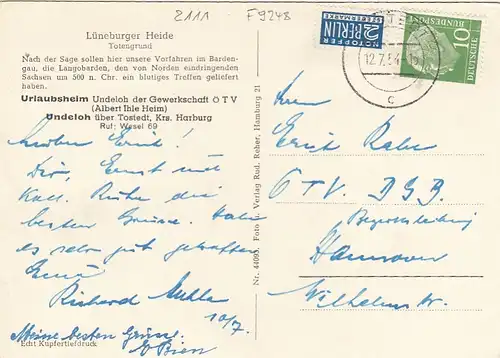 2111 F9248
Lüneburger Heide
Totengrund
Nach der Sage sollen hier unsere Vorfahren im Barden-
gau, die Langobarden, den von Norden eindringenden
Sachsen um 500 n. Chr. ein blutiges Treffen geliefert
haben.
Urlaubsheim Undeloh der Gewerkschaft Ö T V
(Albert Ihle Heim)
Undeloh über Tostedt, Krs. Harburg
Ruf: Wesel 69
Lieber Ernst!
Dir, Ernst und
Koll. Ruhe die
besten Grüsse. Habe
es sehr gut getroffen
Euer
Richard
10/7.
Meine besten Grüsse
Echt Kupfertiefdruck
Nr. 44093 Foto Verlag Rud. Reher, Hamburg 21
NOTOPFER
2 BERLIN
STEUERMARKE
DEUTSCHE BUNDESPOST
10
12.7.54
c
Herrn
Erich
ÖTV. DGB.
Bezirksleitung
Hannover
Wilhelmstr.